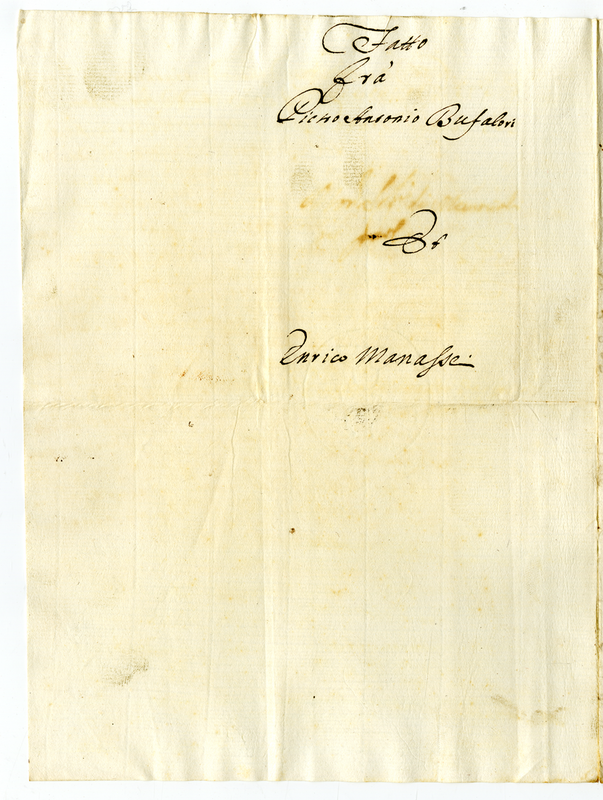 Fatto
frà
Pietro Antonio Bufalori
Et
Enrico Manasse